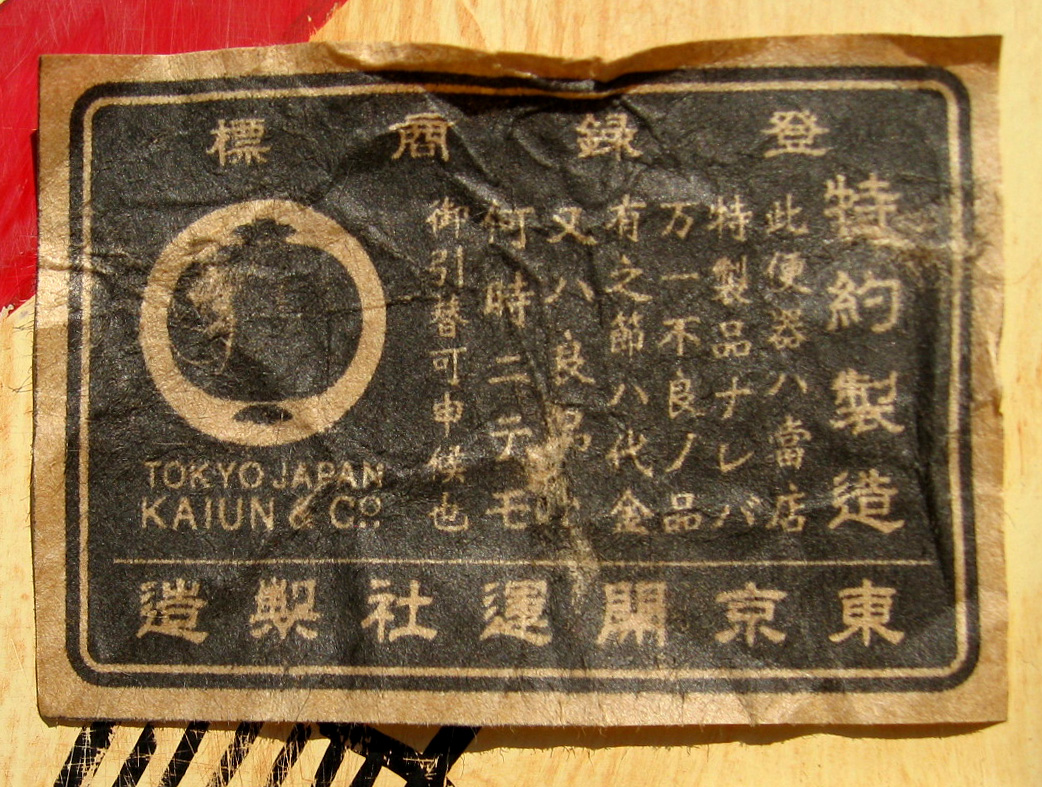 登録商標
特約製造
此便器ハ當店
特製品ナレバ
万一不良ノ品
有之節ハ代金
又ハ良品
何時ニテモ
御引替可申候也
TOKYO JAPAN
KAIUN & CO.
東京開運社製造